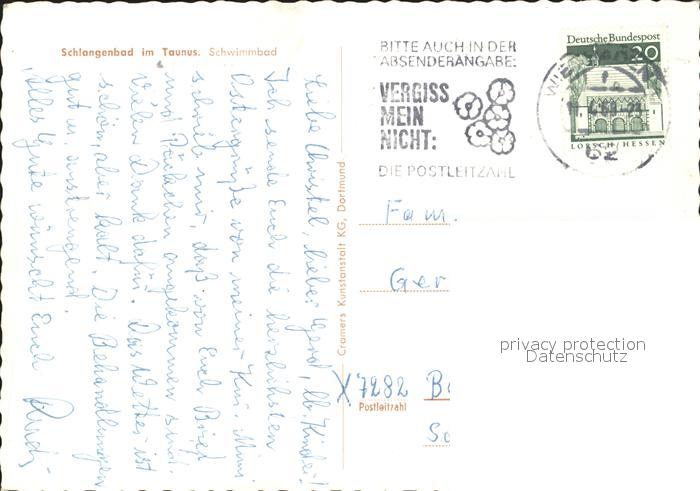 Schlangenbad im Taunus. Schwimmbad
Liebe Christel, lieber Gerd, lb. Kinder!
Ich sende Euch die herzlichsten
Ostergrüße von meiner Kur. Mimi
schrieb mir, daß von Euch Brief
und Päckchen angekommen sind.
Vielen Dank dafür. Das Wetter ist
schön, aber kalt. Die Behandlungen
gut u. anstrengend.
Alles Gute wünscht Euch
Rudi
Cramers Kunstanstalt KG, Dortmund
BITTE AUCH IN DER
ABSENDERANGABE:
VERGISS
MEIN
NICHT:
DIE POSTLEITZAHL
Deutsche Bundespost
20
LORSCH/HESSEN
62
Fam.
Ger
X 7282 B
Postleitzahl
So
privacy protection
Datenschutz